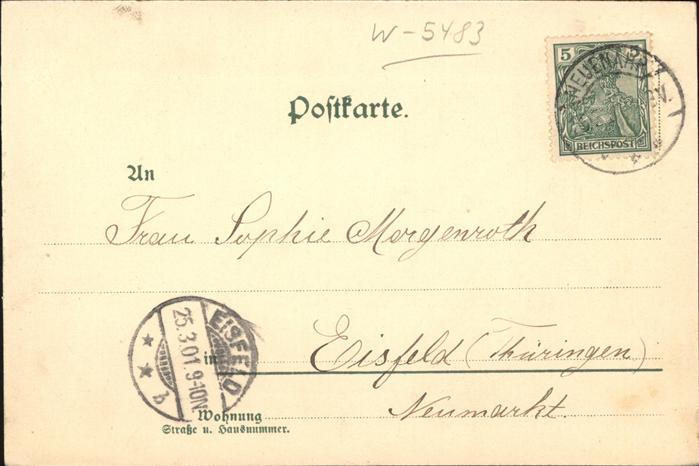 W-5483
5
REICHSPOST
Postkarte.
An
Frau Sophie Morgenroth
EISFELD
25.3.01.9-10N.
b
in Eisfeld (Thüringen)
Wohnung
Straße u. Hausnummer.
Neumarkt.